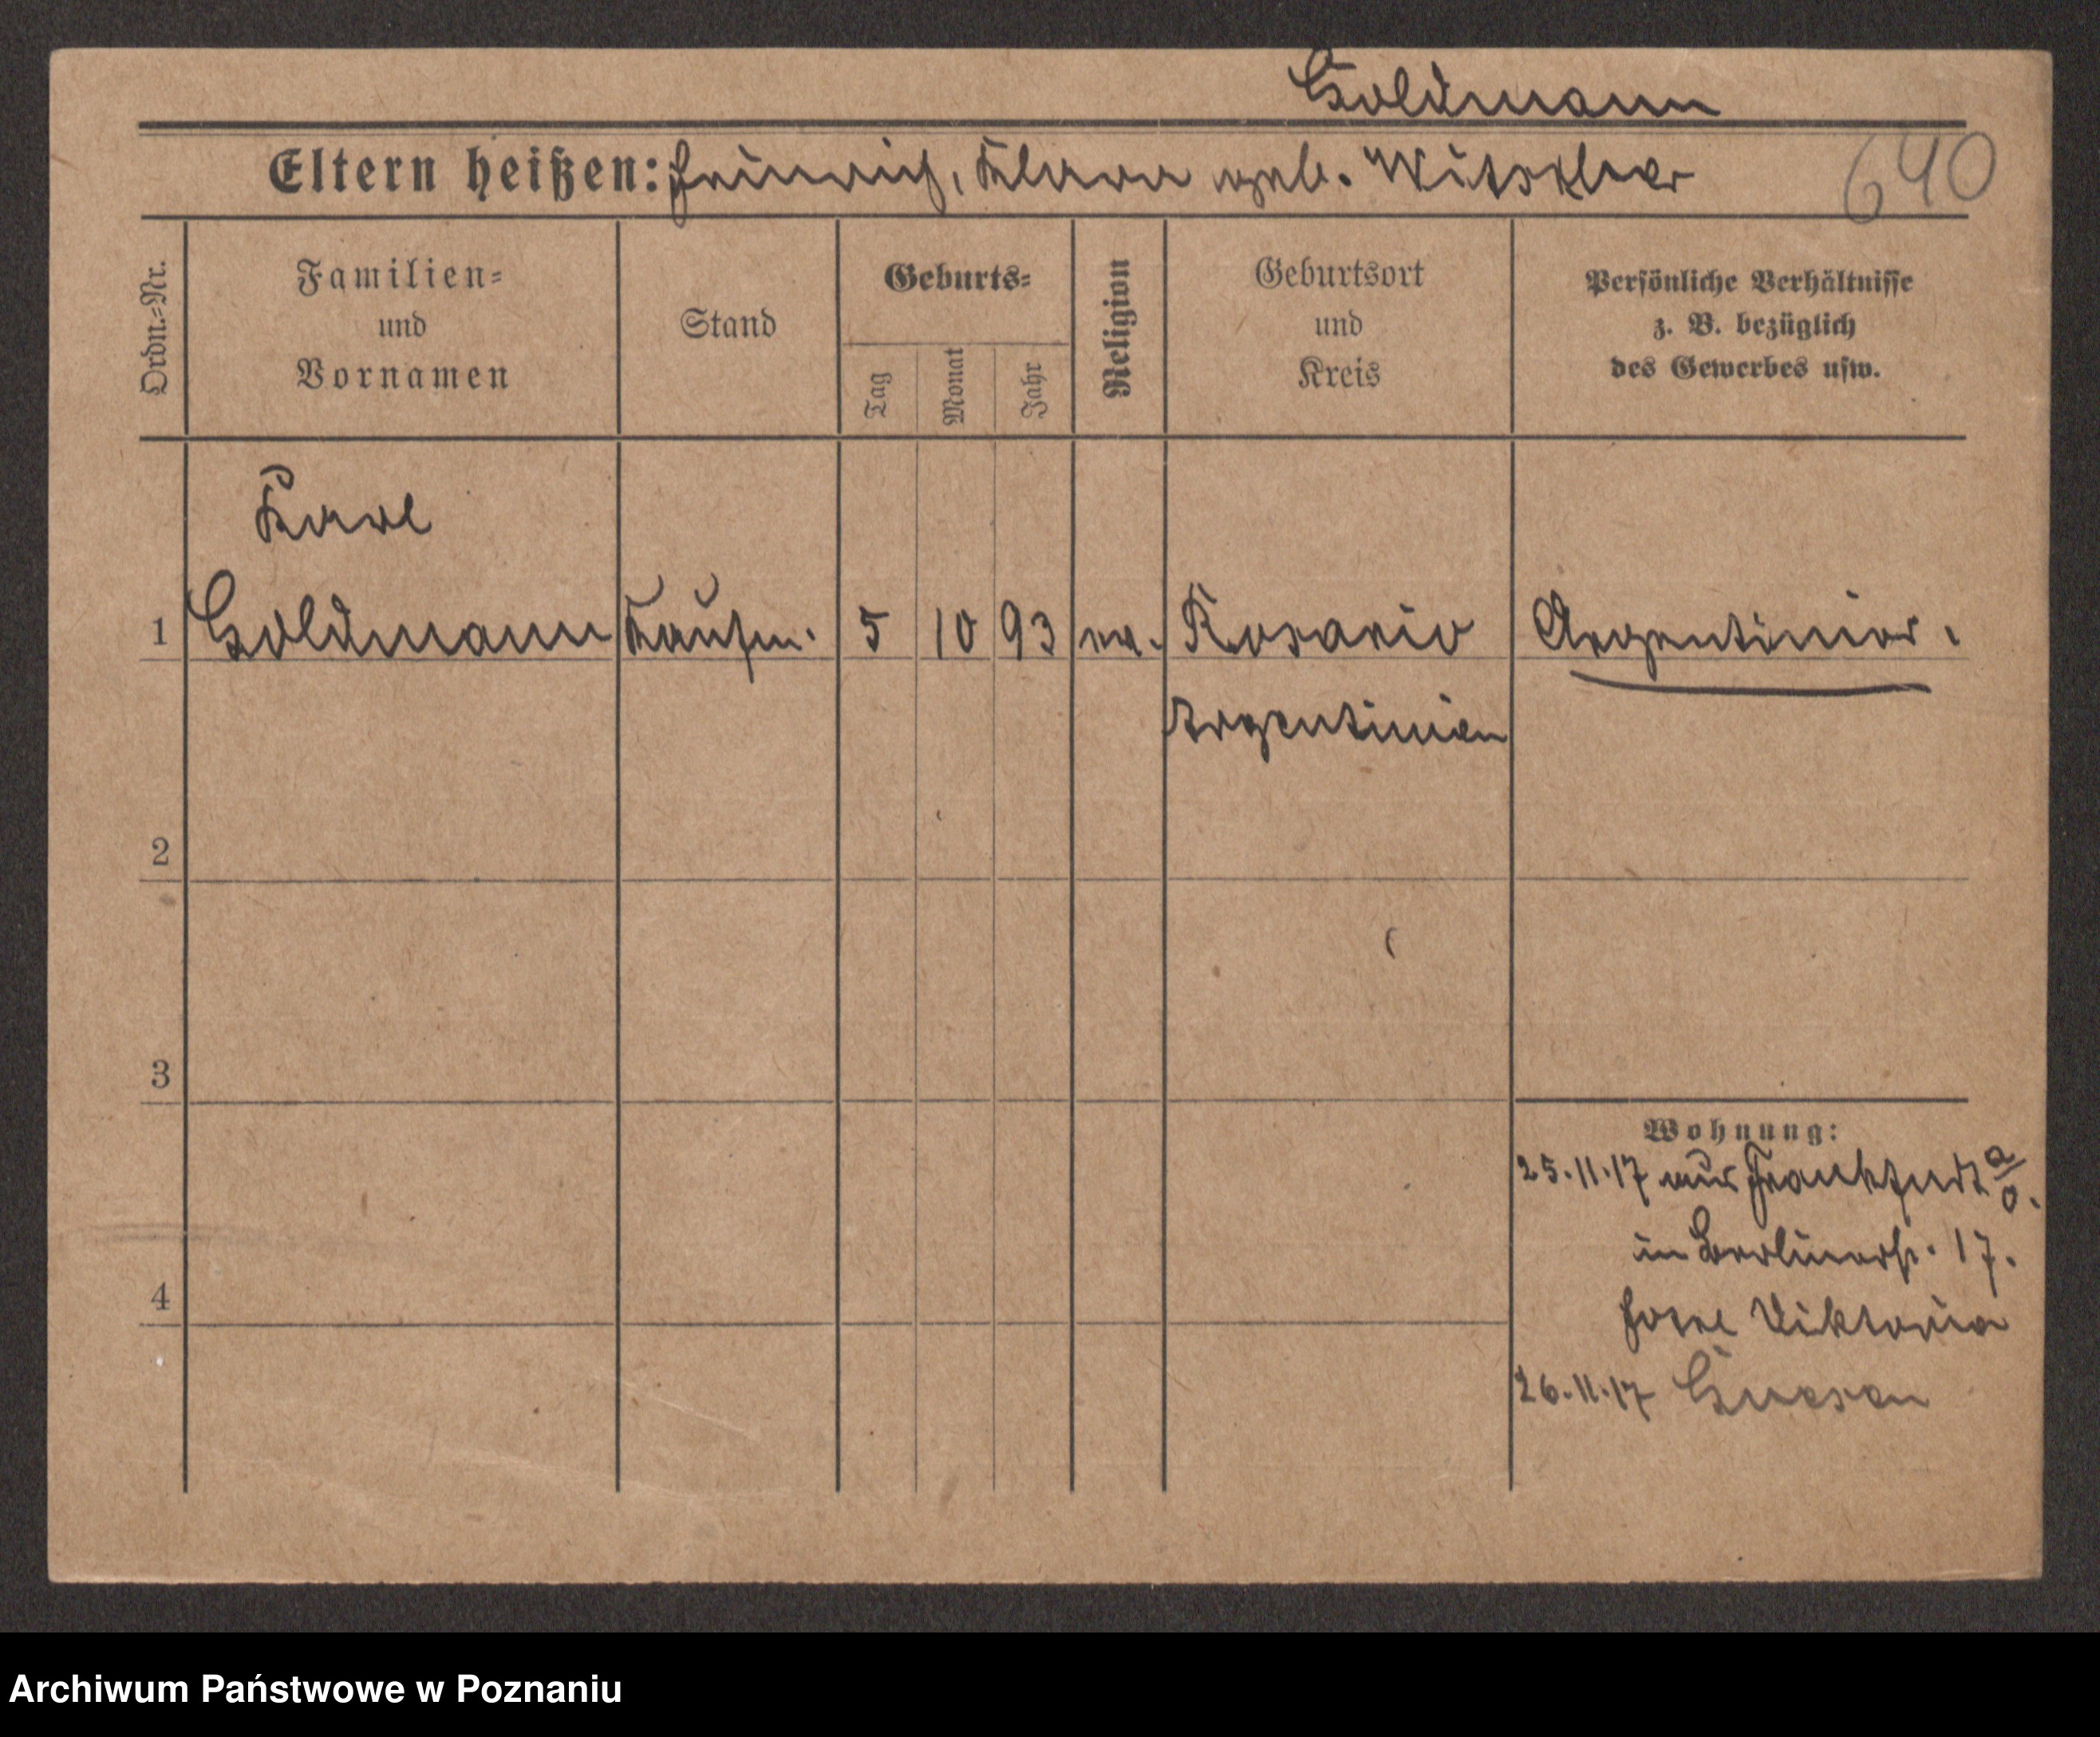 Goldmann
Eltern heißen: Heinrich, Klara geb.
640
Ordn.=Nr.
Familien=
und
Vornamen
Stand
Geburts=
Tag
Monat
Jahr
Religion
Geburtsort
und
Kreis
Persönliche Verhältnisse
z. B. bezüglich
des Gewerbes usw.
Karl
1 Goldmann Kaufm. 5 10 93 ev. Rosario Argentinier.
Argentinien
2
3
4
Wohnung:
25.11.17 aus Frankfurt a/O.
in Berlinerstr. 17.
Hotel Viktoria
26.11.17 Gnesen
Archiwum Państwowe w Poznaniu